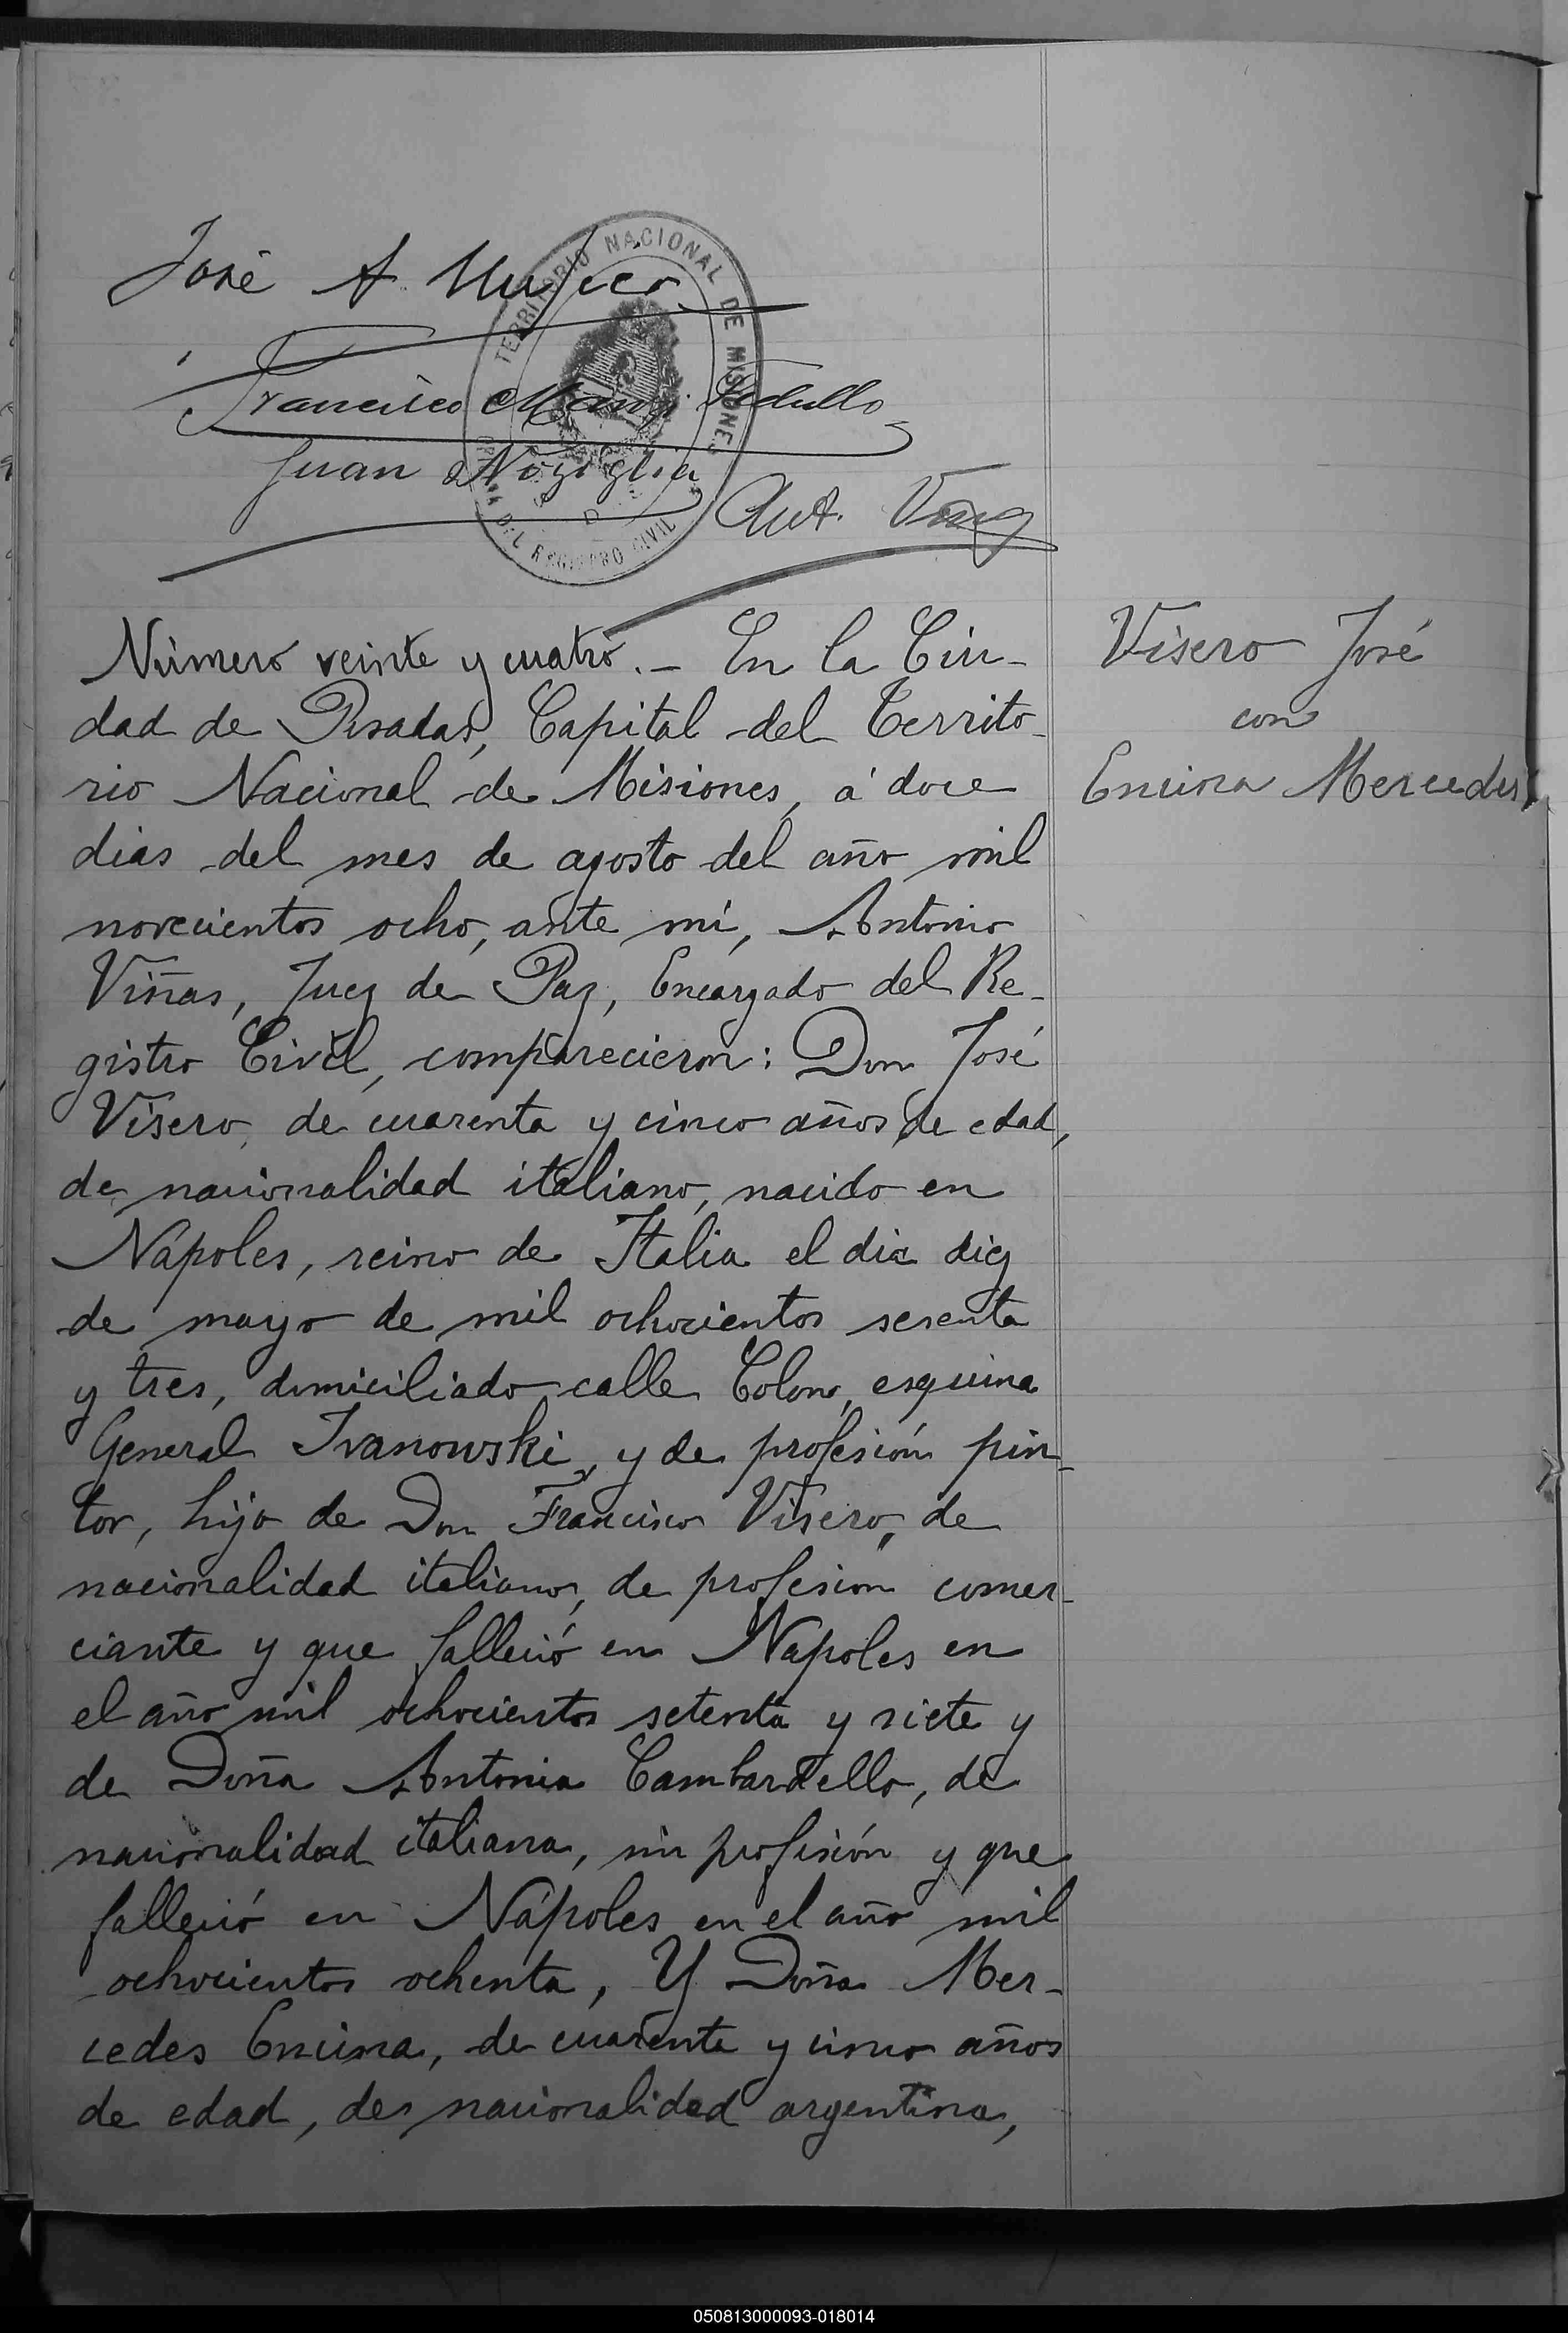 José A.
TERRITORIO NACIONAL DE MISIONES
Francisco
Juan
DEL REGISTRO CIVIL
Ant.
Número veinte y cuatro.- En la Ciu-
dad de Posadas, Capital del Territo-
rio Nacional de Misiones, á doce
dias del mes de agosto del año mil
novecientos ocho, ante mí, Antonio
Viñas, Juez de Paz, Encargado del Re-
gistro Civil, comparecieron: Don José
Visero, de cuarenta y cinco años de edad,
de nacionalidad italiano, nacido en
Nápoles, reino de Italia el dia diez
de mayo de mil ochocientos sesenta
y tres, domiciliado calle Colon, esquina
General Ivanowski, y de profesión pin-
tor, hijo de Don Francisco Visero, de
nacionalidad italiano, de profesion comer-
ciante y que falleció en Napoles en
el año mil ochocientos setenta y siete y
de Doña Antonia Cambardello, de
nacionalidad italiana, sin profisión y que
falleció en Nápoles en el año mil
ochocientos ochenta, Y Doña Mer-
cedes Encina, de cuarenta y cinco años
de edad, de nacionalidad argentina,
Visero José
con
Encina Mercedes
050813000093-018014